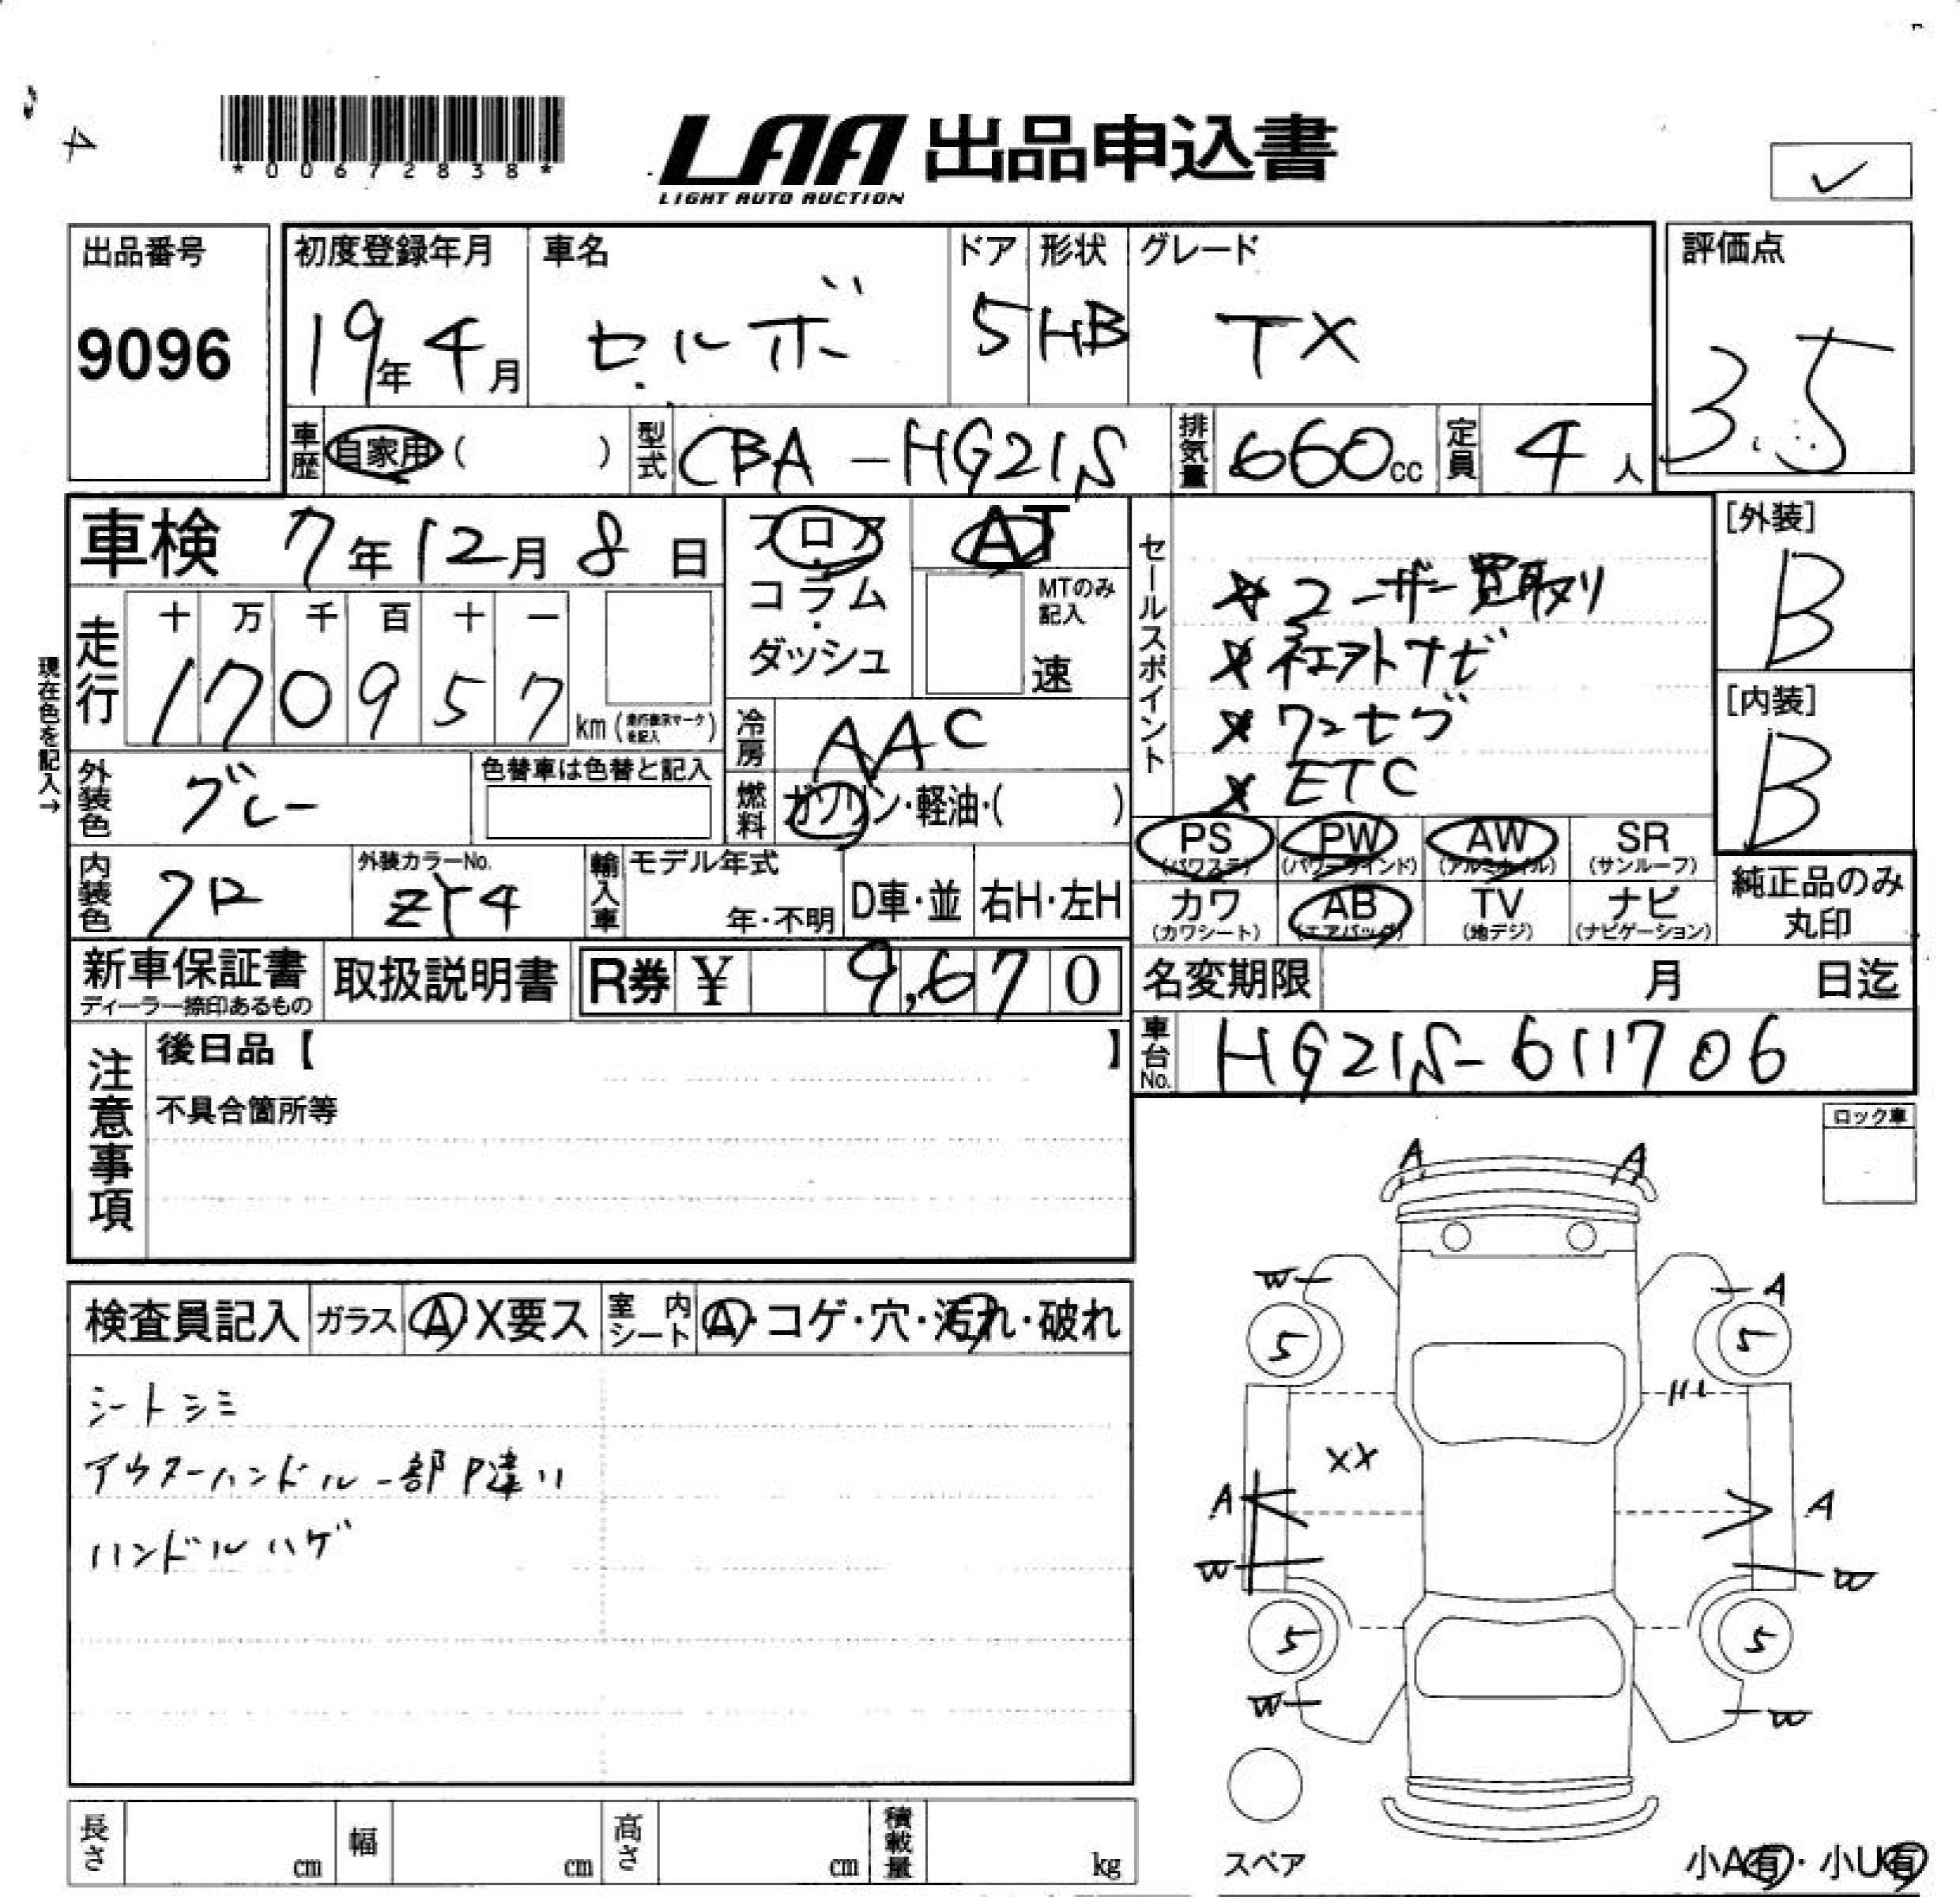 4
*00672838*
LAA 出品申込書
LIGHT AUTO AUCTION
出品番号
9096
初度登録年月
19年4月
車名
セルボ
ドア
5
形状
HB
グレード
TX
評価点
3.5
車歴 自家用( )
型式 CBA-HG21S
排気量 660cc
定員 4人
車検 7年12月8日
走行
十 万 千 百 十 一
1 7 0 9 5 7
km(走行表示マークを記入)
現在色を記入→
フロア
コラム
ダッシュ
AT
MTのみ記入
速
冷房 AAC
燃料 ガソリン・軽油・( )
セールスポイント
ユーザー買取り
ナビ
ワンセグ
ETC
[外装]
B
[内装]
B
外装色 グレー
色替車は色替と記入
内装色 クロ
外装カラーNo.
ZY4
輸入車 モデル年式
年・不明
D車・並
右H・左H
PS (パワステ)
PW (パワーウインド)
AW (アルミホイル)
SR (サンルーフ)
カワ (カワシート)
AB (エアバッグ)
TV (地デジ)
ナビ (ナビゲーション)
純正品のみ丸印
新車保証書
ディーラー捺印あるもの
取扱説明書
R券 ¥ 9,670
名変期限 月 日迄
車台No. HG21S-611706
注意事項
後日品【 】
不具合箇所等
ロック車
検査員記入
ガラス A X要ス
室内シート A・コゲ・穴・汚れ・破れ
シートシミ
アウターハンドル一部P違い
ハンドルハゲ
A A
W A
5 5
XX
A A
W W
5 5
W W
スペア
小A有・小U有
長さ cm
幅 cm
高さ cm
積載量 kg